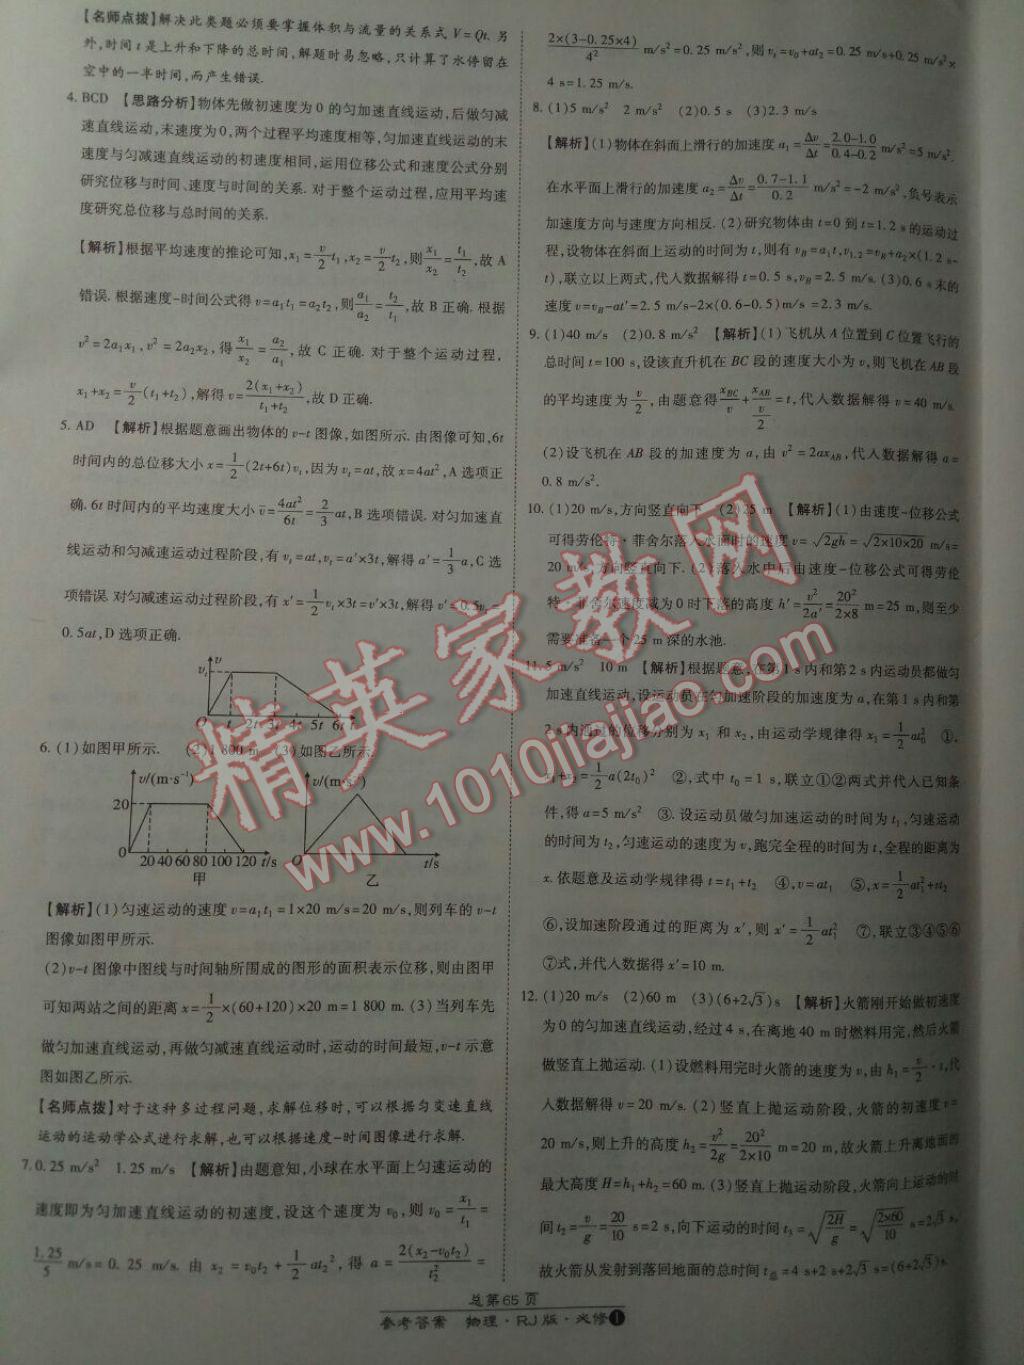 【名师点拨】解决此类题必须要掌握体积与流量的关系式 V=Qt. 另
外,时间 t 是上升和下降的总时间,解题时易忽略,只计算了水停留在
空中的一半时间,而产生错误.
4. BCD 【思路分析】物体先做初速度为 0 的匀加速直线运动,后做匀减
速直线运动,末速度为0,两个过程平均速度相等,匀加速直线运动的末
速度与匀减速直线运动的初速度相同,运用位移公式和速度公式分别
研究位移与时间、速度与时间的关系. 对于整个运动过程,应用平均速
度研究总位移与总时间的关系.
【解析】根据平均速度的推论可知,x₁=v/2 t₁,x₂=v/2 t₂,则x₁/x₂=t₁/t₂,故 A
错误. 根据速度-时间公式得 v=a₁t₁=a₂t₂,则a₁/a₂=t₂/t₁,故 B 正确. 根据
v²=2a₁x₁,v²=2a₂x₂,得x₁/x₂=a₂/a₁,故 C 正确. 对于整个运动过程,
x₁+x₂=v/2(t₁+t₂),解得 v=2(x₁+x₂)/(t₁+t₂),故 D 正确.
5. AD 【解析】根据题意画出物体的 v-t 图像,如图所示. 由图像可知,6t
时间内的总位移大小 x=1/2(2t+6t)vₜ,因为 vₜ=at,故 x=4at²,A 选项正
确. 6t 时间内的平均速度大小 v̄=4at²/6t=2/3 at,B 选项错误. 对匀加速直
线运动和匀减速运动过程阶段,有 vₜ=at,vₜ=a′×3t,解得 a′=1/3 a,C 选
项错误. 对匀减速运动过程阶段,有 x′=1/2 vₜ×3t=v′×3t,解得 v′=0.5vₜ=
0.5at,D 选项正确.
v
vₜ
O t 2t 3t 4t 5t 6t t
6. (1)如图甲所示. (2)1 800 m (3)如图乙所示.
v/(m·s⁻¹) v/(m·s⁻¹)
20
0 20 40 60 80 100 120 t/s O t/s
甲 乙
【解析】(1)匀速运动的速度 v=a₁t₁=1×20 m/s=20 m/s,则列车的 v-t
图像如图甲所示.
(2)v-t 图像中图线与时间轴所围成的图形的面积表示位移,则由图甲
可知两站之间的距离 x=1/2×(60+120)×20 m=1 800 m. (3)当列车先
做匀加速直线运动,再做匀减速直线运动时,运动的时间最短,v-t 示意
图如图乙所示.
【名师点拨】对于这种多过程问题,求解位移时,可以根据匀变速直线
运动的运动学公式进行求解,也可以根据速度-时间图像进行求解.
7. 0.25 m/s² 1.25 m/s 【解析】由题意知,小球在水平面上匀速运动的
速度即为匀加速直线运动的初速度,设这个速度为 v₀,则 v₀=x₁/t₁=
1.25/5 m/s=0.25 m/s. 由 x₂=v₀t₂+1/2 at₂²,得 a=2(x₂-v₀t₂)/t₂²=
2×(3-0.25×4)/4² m/s²=0.25 m/s²,则 vₜ=v₀+at₂=0.25 m/s+0.25 m/s²×
4 s=1.25 m/s.
8. (1)5 m/s² 2 m/s² (2)0.5 s (3)2.3 m/s
【解析】(1)物体在斜面上滑行的加速度 a₁=Δv/Δt=(2.0-1.0)/(0.4-0.2) m/s²=5 m/s²,
在水平面上滑行的加速度 a₂=Δv/Δt=(0.7-1.1)/0.2 m/s²=-2 m/s²,负号表示
加速度方向与速度方向相反. (2)研究物体由 t=0 到 t=1.2 s的运动过
程,设物体在斜面上运动的时间为 t,则有 v_B=a₁t,v₁.₂=v_B+a₂×(1.2 s-
t),联立以上两式,代入数据解得 t=0.5 s,v_B=2.5 m/s. (3)0.6 s末的
速度 v=v_B-at′=2.5 m/s-2×(0.6-0.5)m/s=2.3 m/s.
9. (1)40 m/s (2)0.8 m/s² 【解析】(1)飞机从 A 位置到 C 位置飞行的
总时间 t=100 s,设该直升机在 BC 段的速度大小为 v,则飞机在 AB 段
的平均速度为v/2,由题意得x_BC/v+x_AB/(v/2)=t,代入数据解得 v=40 m/s.
(2)设飞机在 AB 段的加速度为 a,由 v²=2ax_AB,代入数据解得 a=
0.8 m/s².
10. (1)20 m/s,方向竖直向下 (2)25 m 【解析】(1)由速度-位移公式
可得劳伦特·菲舍尔落入水面时的速度 v=√2gh=√2×10×20 m/s=
20 m/s,方向竖直向下. (2)落入水中后由速度-位移公式可得劳伦
特·菲舍尔速度减为 0 时下落的高度 h′=v²/2a′=20²/(2×8) m=25 m,则至少
需要准备一个 25 m 深的水池.
11. 5 m/s² 10 m 【解析】根据题意,在第 1 s 内和第 2 s 内运动员都做匀
加速直线运动,设运动员在匀加速阶段的加速度为 a,在第 1 s 内和第
2 s内通过的位移分别为 x₁ 和 x₂,由运动学规律得 x₁=1/2 at₀² ①,
x₁+x₂=1/2 a(2t₀)² ②,式中 t₀=1 s,联立①②两式并代入已知条
件,得 a=5 m/s² ③. 设运动员做匀加速运动的时间为 t₁,匀速运动
的时间为 t₂,匀速运动的速度为 v,跑完全程的时间为 t,全程的距离为
x. 依题意及运动学规律得 t=t₁+t₂ ④,v=at₁ ⑤,x=1/2 at₁²+vt₂
⑥,设加速阶段通过的距离为 x′,则 x′=1/2 at₁² ⑦,联立③④⑤⑥
⑦式,并代入数据得 x′=10 m.
12. (1)20 m/s (2)60 m (3)(6+2√3)s 【解析】火箭刚开始做初速度
为 0 的匀加速直线运动,经过 4 s,在离地 40 m 时燃料用完,然后火箭
做竖直上抛运动. (1)设燃料用完时火箭的速度为 v,由 h₁=v/2·t,代
入数据解得 v=20 m/s. (2)竖直上抛运动阶段,火箭的初速度 v=
20 m/s,则上升的高度 h₂=v²/2g=20²/(2×10) m=20 m,故火箭上升离地面的
最大高度 H=h₁+h₂=60 m. (3)竖直上抛运动阶段,火箭向上运动的时
间 t₂=v/g=20/10 s=2 s,向下运动的时间 t₃=√(2H/g)=√(2×60/10) s=2√3 s,
故火箭从发射到落回地面的总时间 t总=4 s+2 s+2√3 s=(6+2√3)s.
总第65 页
参考答案 物理·RJ版·必修1
精英家教网
www.1010jiajiao.com